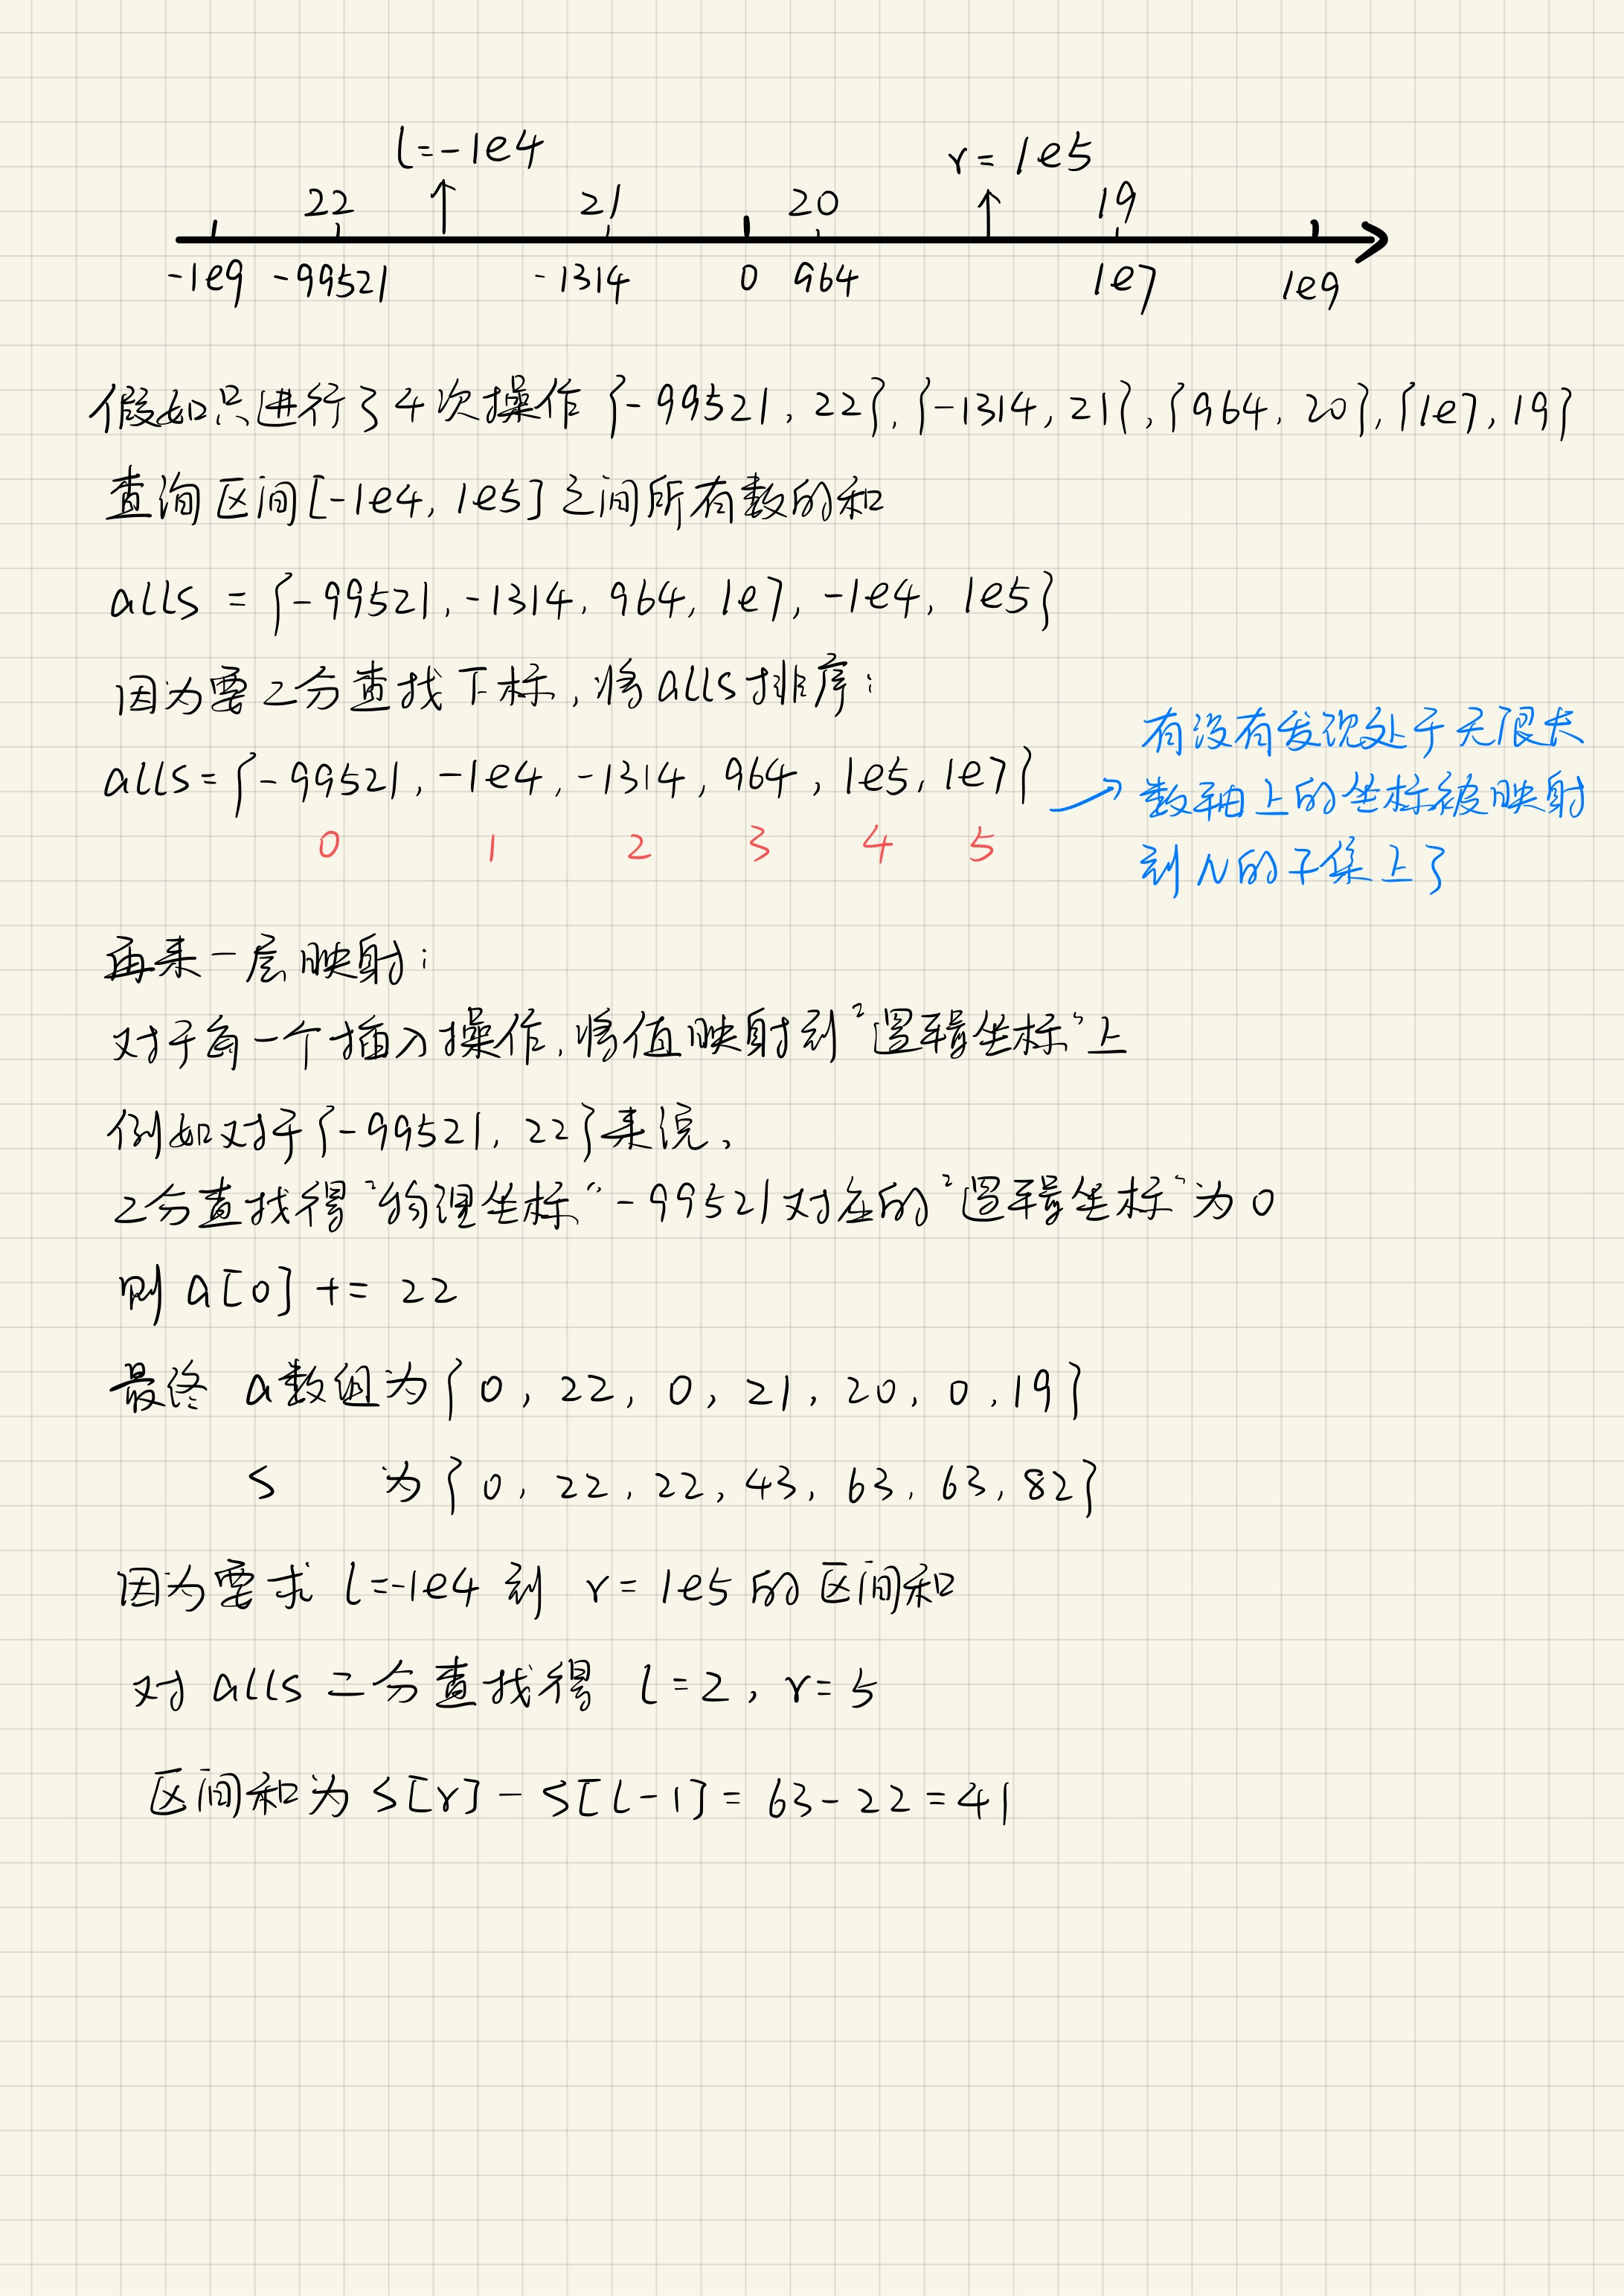 l=-1e4
r=1e5
22 21 20 19
-1e9 -99521 -1314 0 964 1e7 1e9
假如只进行了4次操作{-99521, 22}, {-1314, 21}, {964, 20}, {1e7, 19}
查询区间[-1e4, 1e5]之间所有数的和
alls = {-99521, -1314, 964, 1e7, -1e4, 1e5}
因为要二分查找下标,将alls排序:
alls={-99521, -1e4, -1314, 964, 1e5, 1e7}
0 1 2 3 4 5
有没有发现处于无限长
数轴上的坐标被映射
到N的子集上了
再来一层映射:
对于每一个插入操作,将值映射到"逻辑坐标"上
例如对于{-99521, 22}来说,
二分查找得"物理坐标"-99521对应的"逻辑坐标"为0
则a[0] += 22
最终 a数组为{0, 22, 0, 21, 20, 0, 19}
S 为{0, 22, 22, 43, 63, 63, 82}
因为要求 l=-1e4 到 r=1e5的区间和
对alls二分查找得 l=2, r=5
区间和为S[r]-S[l-1]=63-22=41